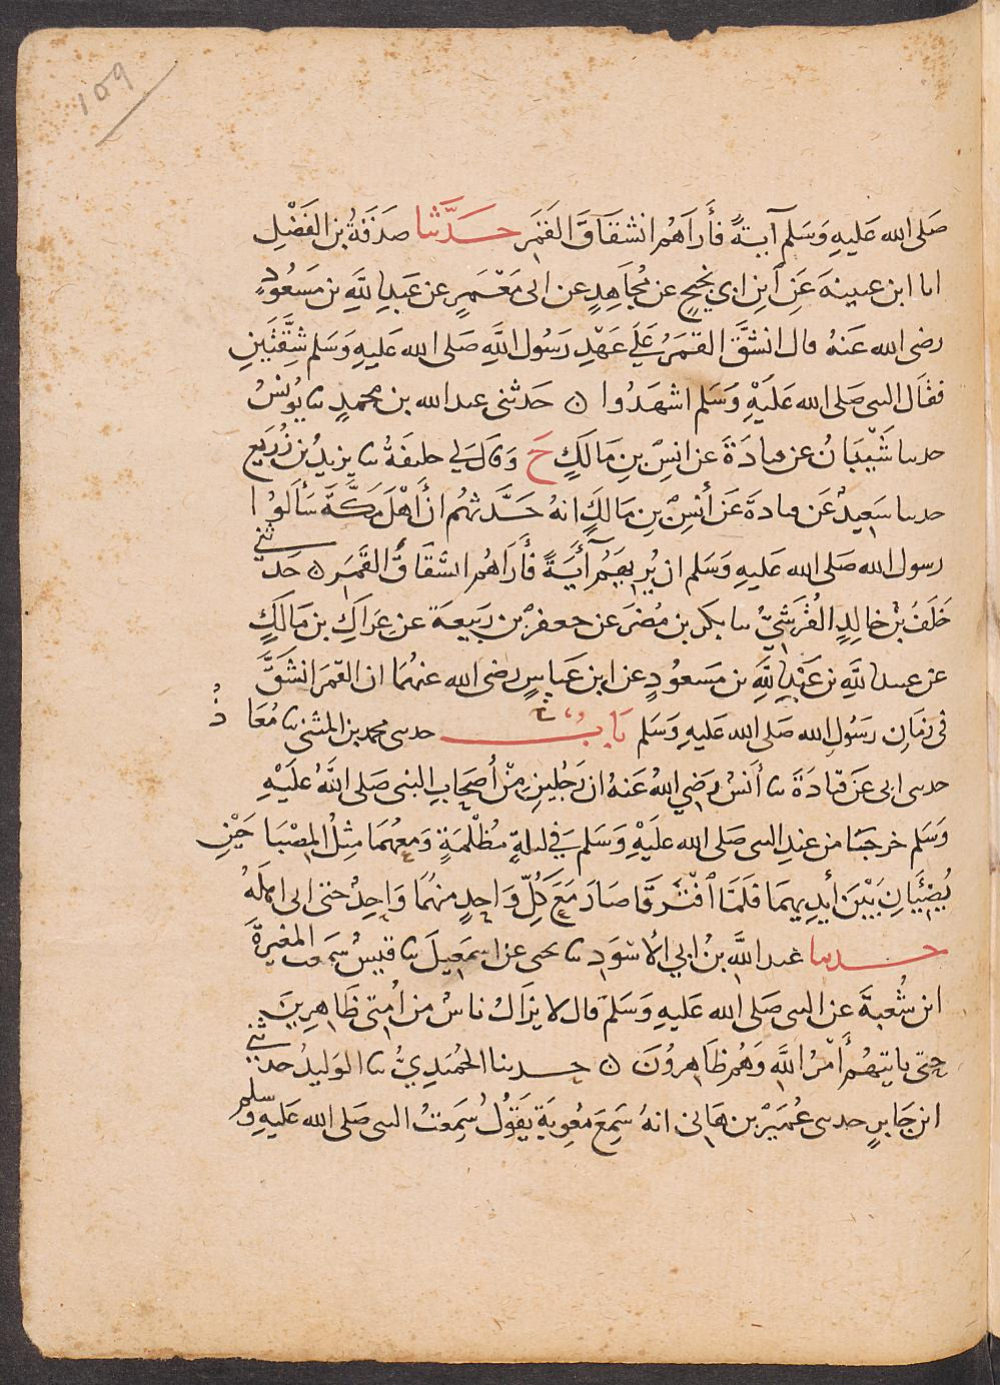 ١٥٩
صَلى الله عَليهِ وَسَلم آيةً فأَرَاهُم انشقَاقَ القمَر حَدَّثنا صَدَقَةُ بن الفَضْلِ
اما ابن عيينة عَنِ ابنِ ابي نجيحٍ عن مُجاهِدٍ عن ابى مَعْمَرٍ عن عَبدِ اللَّهِ بن مَسعُودٍ
رضى الله عَنهُ قال انشقَّ القمَرُ عَلَى عَهْدِ رَسُول اللَّهِ صَلى الله عَليهِ وَسَلم شِقَّتَيْنِ
فقَال النبى صَلى الله عَلَيْهِ وَسَلم اشهَدُوا ن حَدثنى عبد الله بن محمدٍ نا يُونُسُ
حدثنا شَيْبَانُ عن قتادَةَ عن انسِ بنِ مَالكٍ حَ وَقالَ لي خليفَةُ نا يزيدُ بن زُرَيع
حدثنا سَعِيدٌ عَن قتادةَ عَن أنسِ بنِ مَالكٍ انهُ حَدَّثهُم انَّ أهْلَ مَكَّةَ سَأَلوُا
رسول الله صَلى الله عَليهِ وَسَلم ان يُريَهُمْ آيَةً فأَرَاهُم انشقَاقَ القَمَر ن حَدثنى
خَلَفُ بْنُ خالِدٍ القُرَشِيُّ نا بكر بن مُضَرَ عن جعفر بن رَبيعَة عن عِرَاكِ بن مَالكٍ
عن عبيد اللَّهِ بن عَبْدِ اللَّهِ بن مَسعوُدٍ عن ابن عَباسٍ رضى الله عنهُمَا ان القمَرَ انشَقَّ
فى زمَانِ رَسُولِ الله صَلى الله عَليهِ وَسَلم بَابٌ حدثنى محمد بن المثنى نا مُعَاذُ
حدثنى ابى عَن قتادَةَ نا أَنسُ رَضي اللهُ عَنهُ ان رَجُلينِ مِنْ أصحَابِ النبى صَلى اللَّهُ عَلَيْهِ
وَسَلم خرجَا من عندِ النبى صَلى الله عَليْهِ وَسَلم فِي ليلةٍ مُظْلمَةٍ وَمعهُمَا مِثلُ المِصْبَاحَيْنِ
يُضِيئَانِ بَيْنَ أيدِيهِمَا فلَمَّا افْتَرَقَا صَارَ مَعَ كُلِّ وَاحِدٍ منهُمَا وَاحِدٌ حتى اتى اهلَهُ
حدثنا عَبد اللَّه بنُ ابي الأسْوَد نا يحيى عن اسمَعِيلَ نا قيسٌ سَمعت المغيرَةَ
ابن شُعبةَ عن النبى صَلى الله عَليهِ وَسَلم قال لا يزَالُ ناسٌ من اُمتى ظَاهِرِينَ
حتى ياتيَهُم أمْرُ اللَّهِ وَهُم ظاهِرُونَ ن حدثنا الحُمَيدِيُّ نا الوَليدُ حدثنى
ابن جَابرٍ حدثنى عُمَيرُ بن هَانئ انهُ سَمِعَ مُعوِيَةَ يَقوُلُ سَمِعتُ النبى صَلى الله عَليهِ وسلم